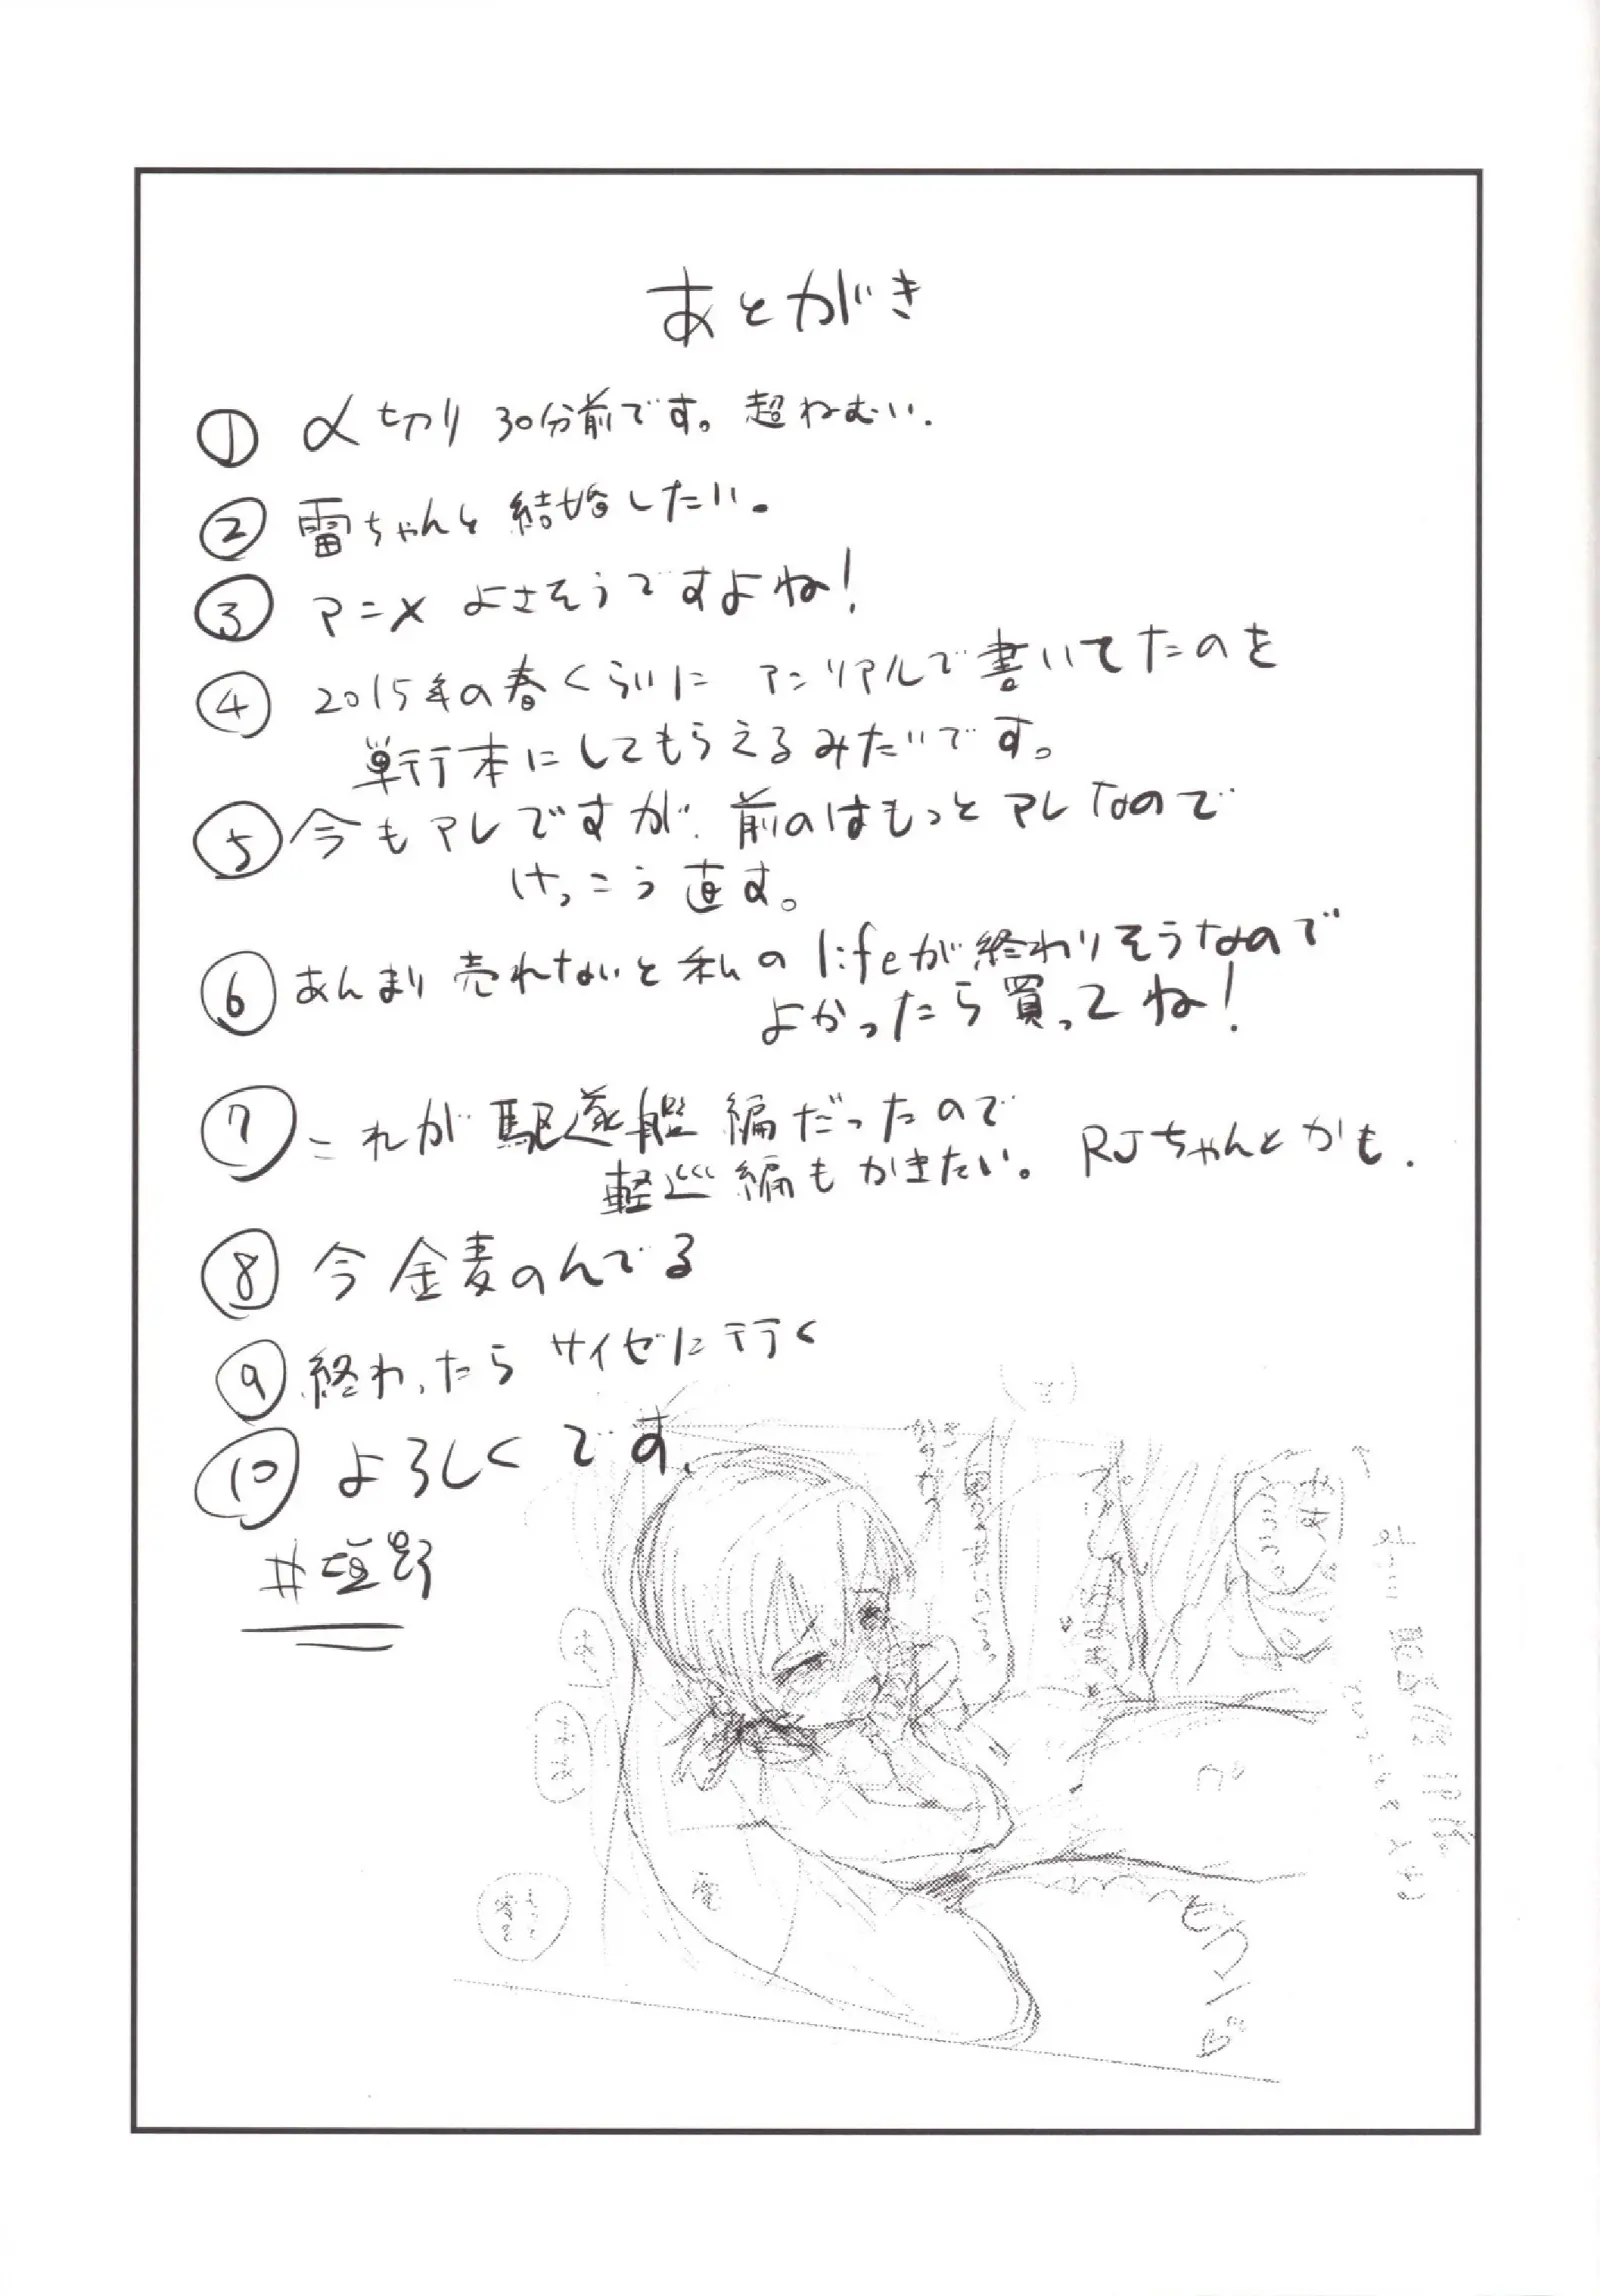 あとがき
① 〆切り 30分前です。超ねむい.
② 雷ちゃんと結婚したい。
③ アニメ よさそうですよね!
④ 2015年の春くらいに アンリアルで書いてたのを
単行本にしてもらえるみたいです。
⑤ 今もアレですが、前のはもっとアレなので
けっこう直す。
⑥ あんまり売れないと私のlifeが終わりそうなので
よかったら買ってね!
⑦ これが駆逐艦編だったので
軽巡編もかきたい。RJちゃんとかも.
⑧ 今 金麦のんでる
⑨ 終わったら サイゼに行く
⑩ よろしくです.